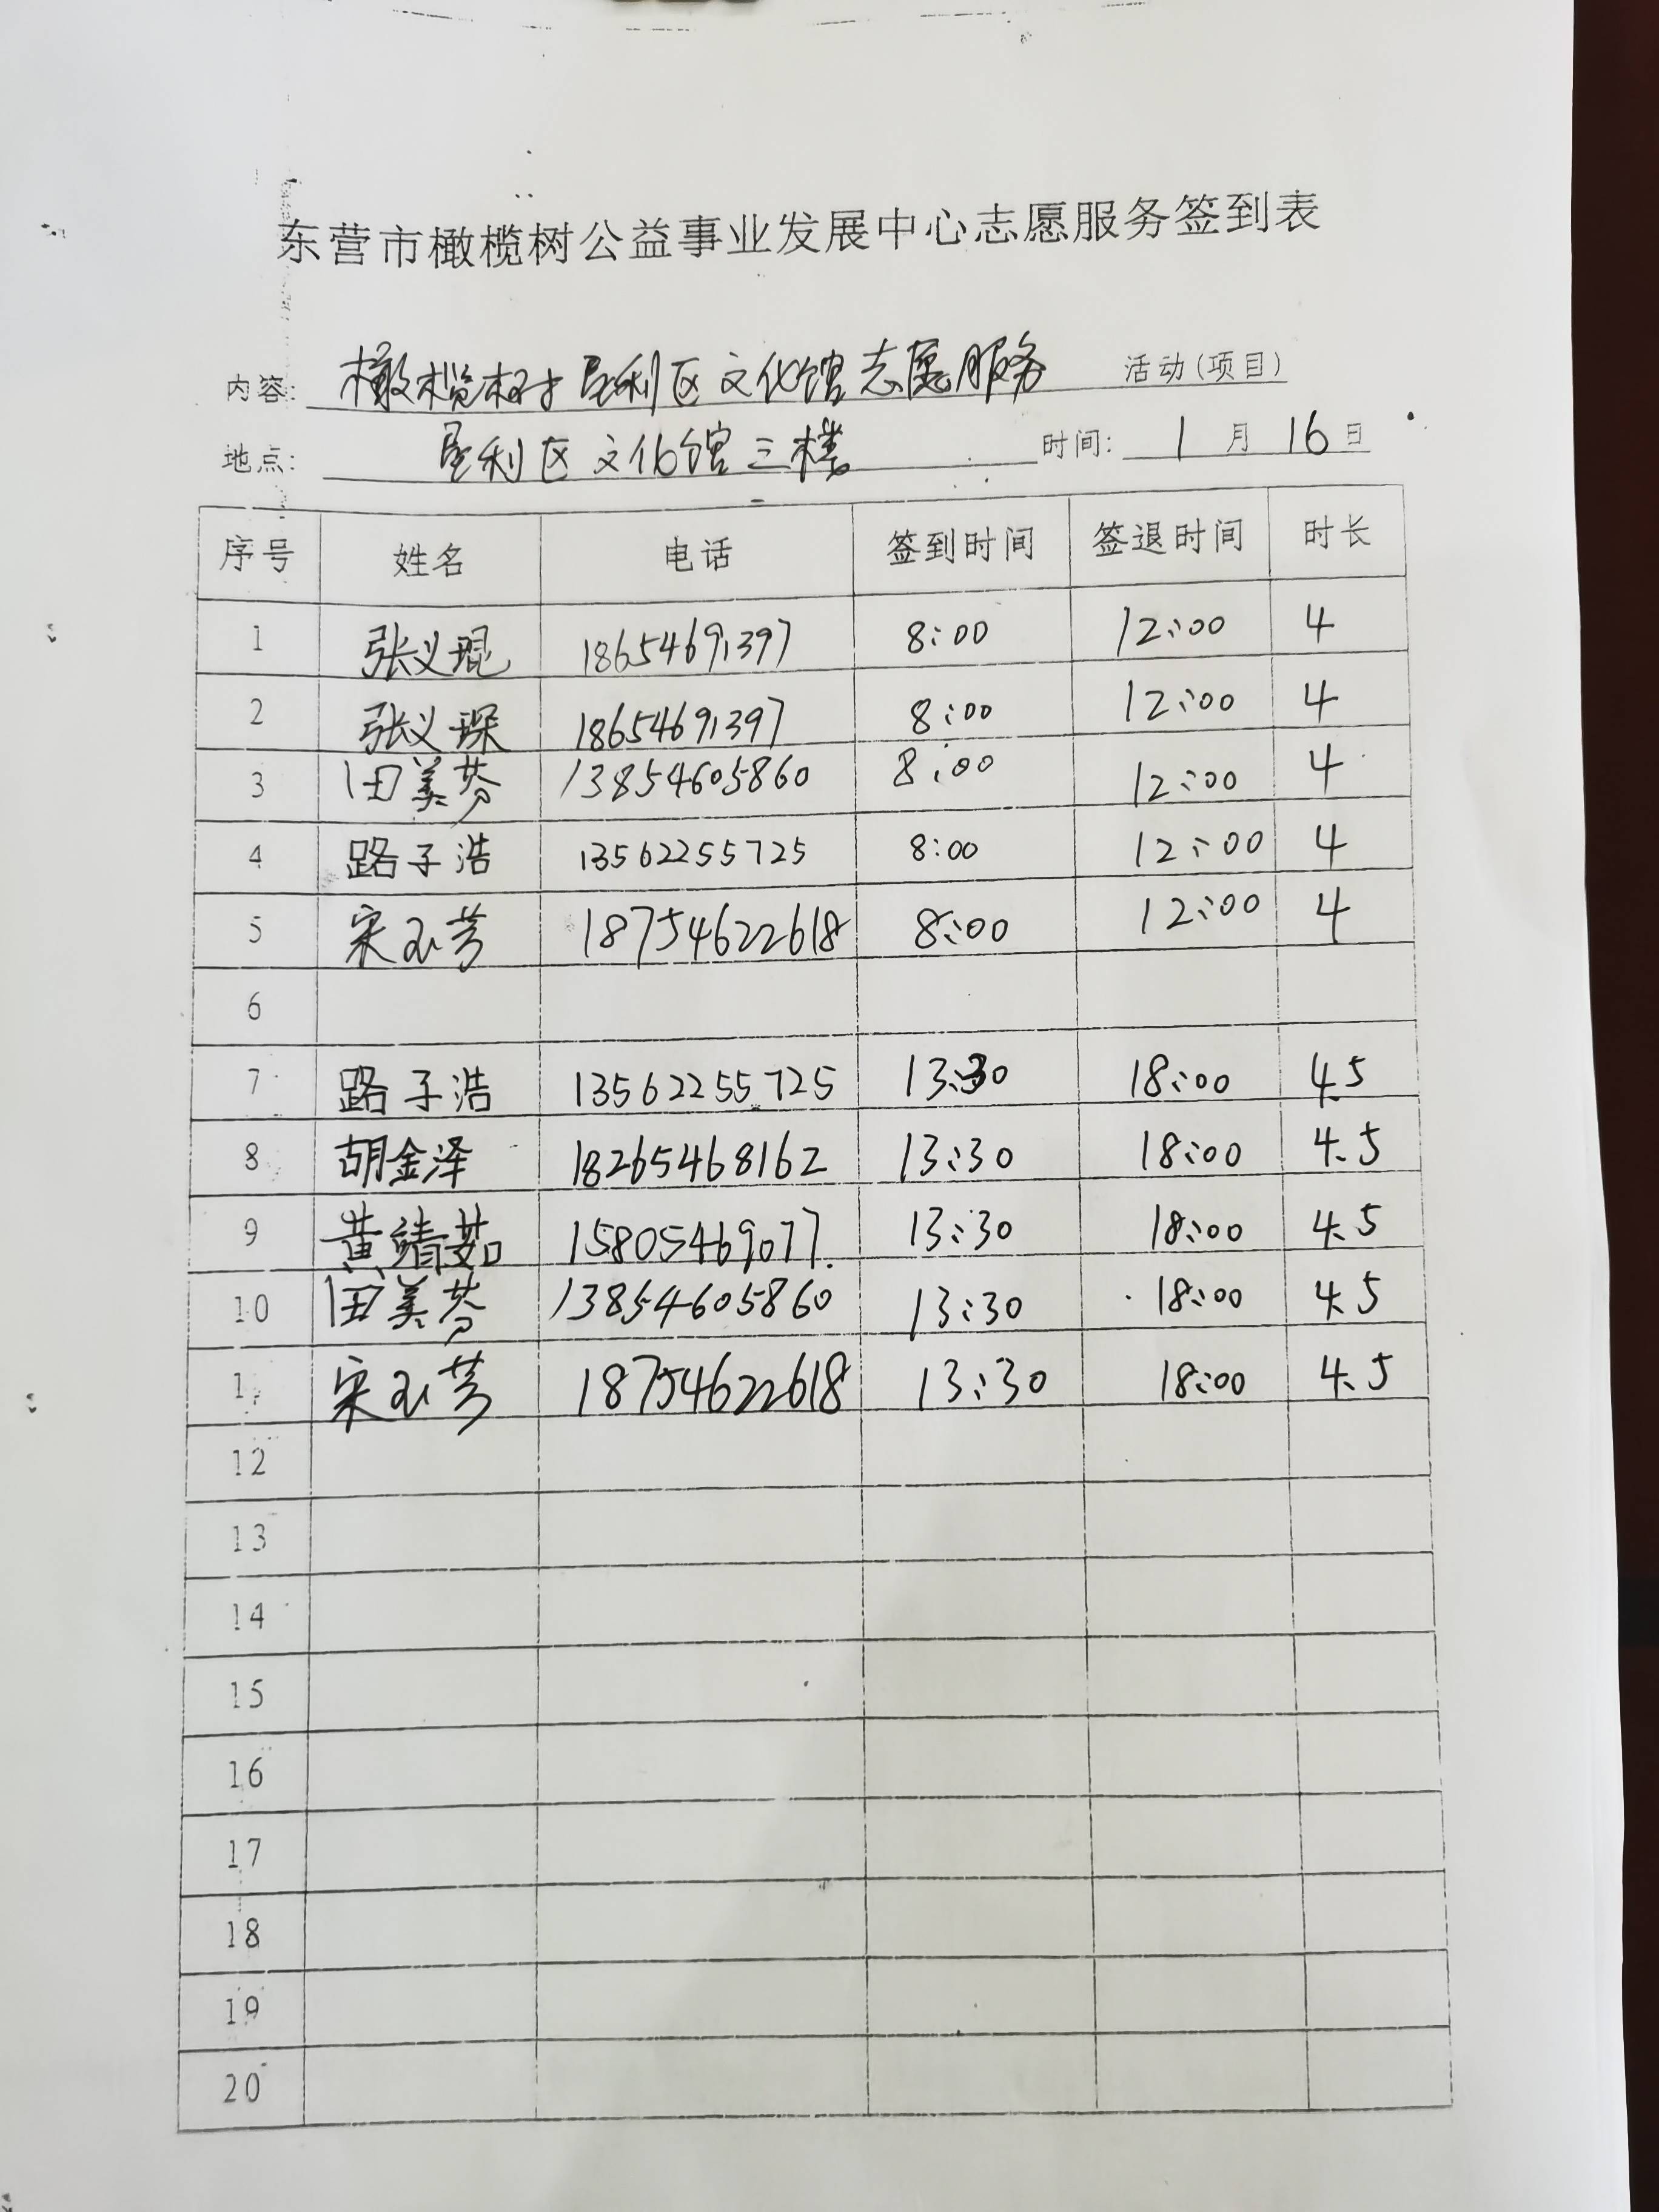 东营市橄榄树公益事业发展中心志愿服务签到表
内容: 橄榄树垦利区文化馆志愿服务 活动(项目)
地点: 垦利区文化馆三楼 时间: 1月16日
序号 姓名 电话 签到时间 签退时间 时长
1 张义琨 18654691397 8:00 12:00 4
2 张义琛 18654691397 8:00 12:00 4
3 田美芬 13854605860 8:00 12:00 4
4 路子浩 13562255725 8:00 12:00 4
5 宋玉芳 18754622618 8:00 12:00 4
6
7 路子浩 13562255725 13:30 18:00 4.5
8 胡金泽 18265468162 13:30 18:00 4.5
9 黄靖茹 15805469077 13:30 18:00 4.5
10 田美芬 13854605860 13:30 18:00 4.5
11 宋玉芳 18754622618 13:30 18:00 4.5
12
13
14
15
16
17
18
19
20